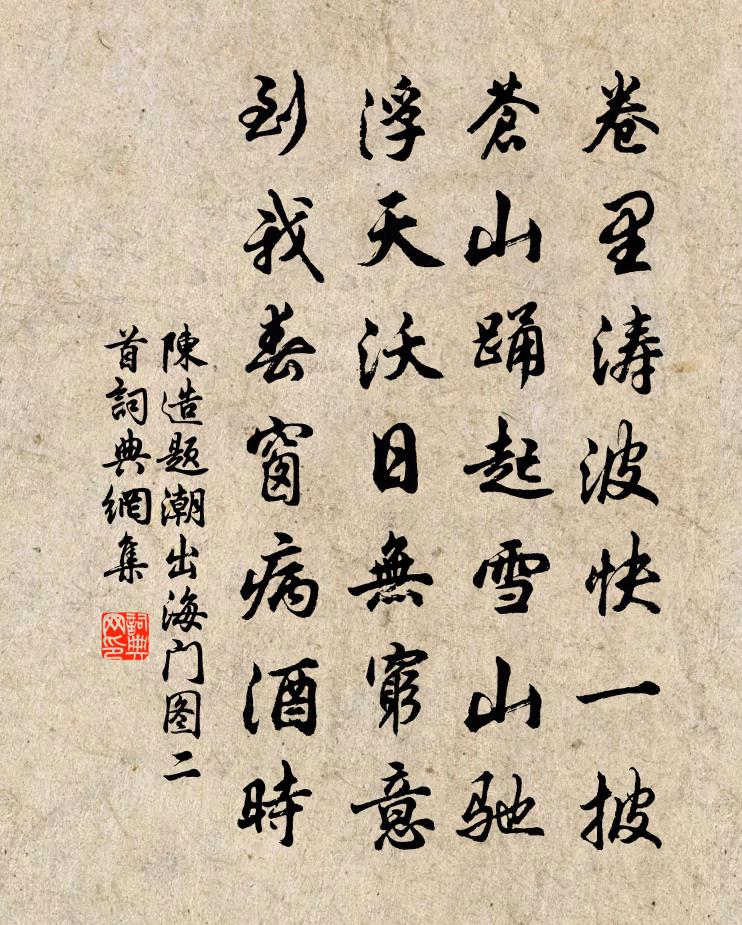 卷里涛波快一披
蒼山踊起雪山驰
浮天沃日無窮意
到我春窗病酒時
陳造题潮出海门图二
首詞典網集
詞典
网印